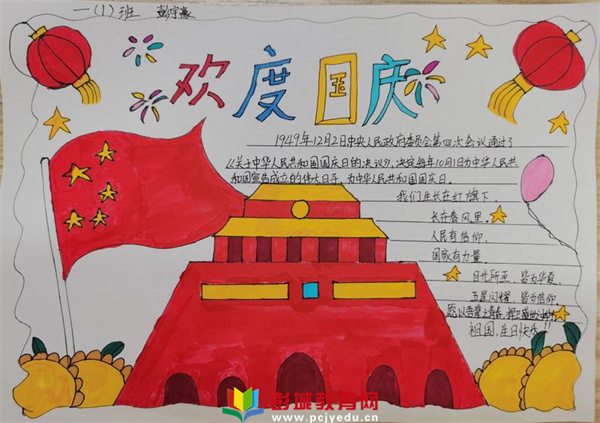 一(1)班
欢度国庆
1949年12月2日中央人民政府委员会第四次会议通过了
《关于中华人民共和国国庆日的决议》,决定每年10月1日为中华人民共
和国宣告成立的伟大日子,为中华人民共和国国庆日。
我们生长在红旗下
长在春风里。
人民有信仰,
国家有力量。
目光所至,皆为华夏,
五星闪耀,皆为信仰,
愿以吾辈之青春,
祖国,生日快乐!!
彭城教育网
www.pcjyedu.cn